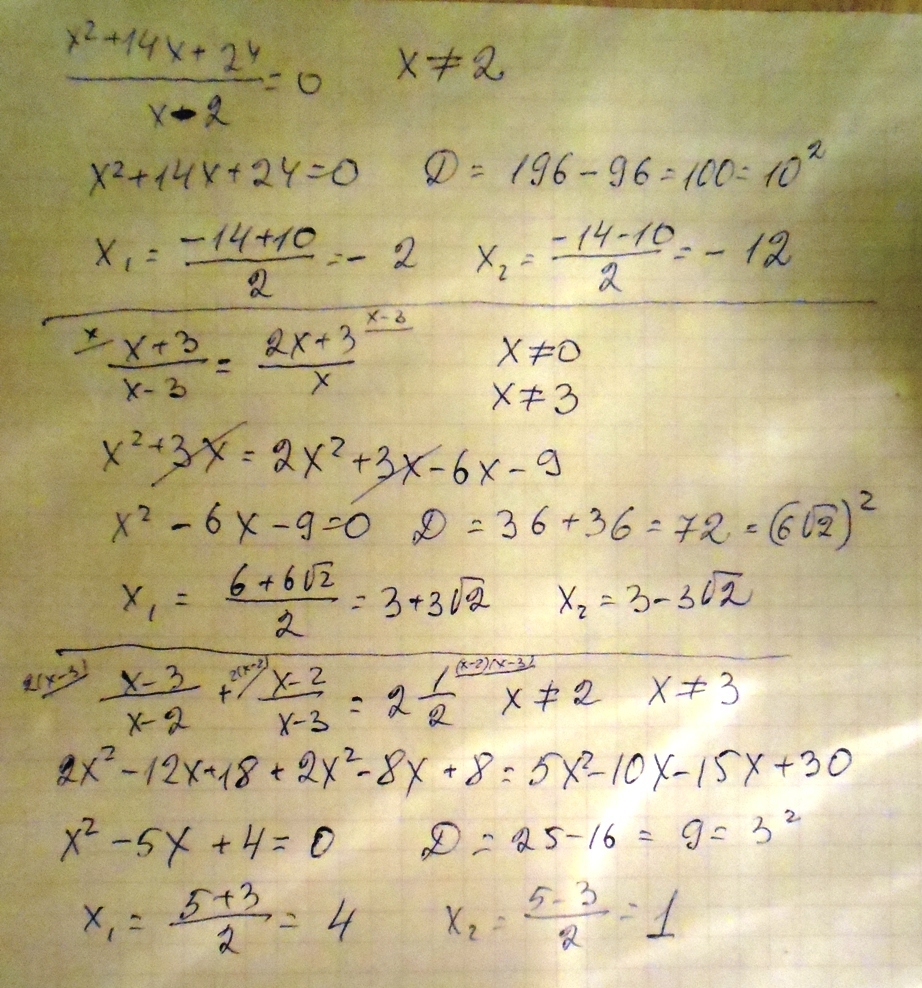 x²+14x+24 / x-2 = 0    x ≠ 2
x²+14x+24=0    D = 196-96=100=10²
x₁ = -14+10 / 2 = - 2    x₂ = -14-10 / 2 = - 12
x / x+3 / x-3 = 2x+3 / x  x-3    x ≠ 0
x ≠ 3
x²+3x = 2x²+3x-6x-9
x² - 6x - 9=0    D = 36+36=72=(6√2)²
x₁ = 6+6√2 / 2 = 3+3√2    x₂ = 3-3√2
2(x-3) / x-3 / x-2 + 2(x-2) / x-2 / x-3 = 2 1/2  (x-2)(x-3)    x ≠ 2    x ≠ 3
2x²-12x+18+2x²-8x+8=5x²-10x-15x+30
x²-5x+4=0    D = 25-16=9=3²
x₁ = 5+3 / 2 = 4    x₂ = 5-3 / 2 = 1